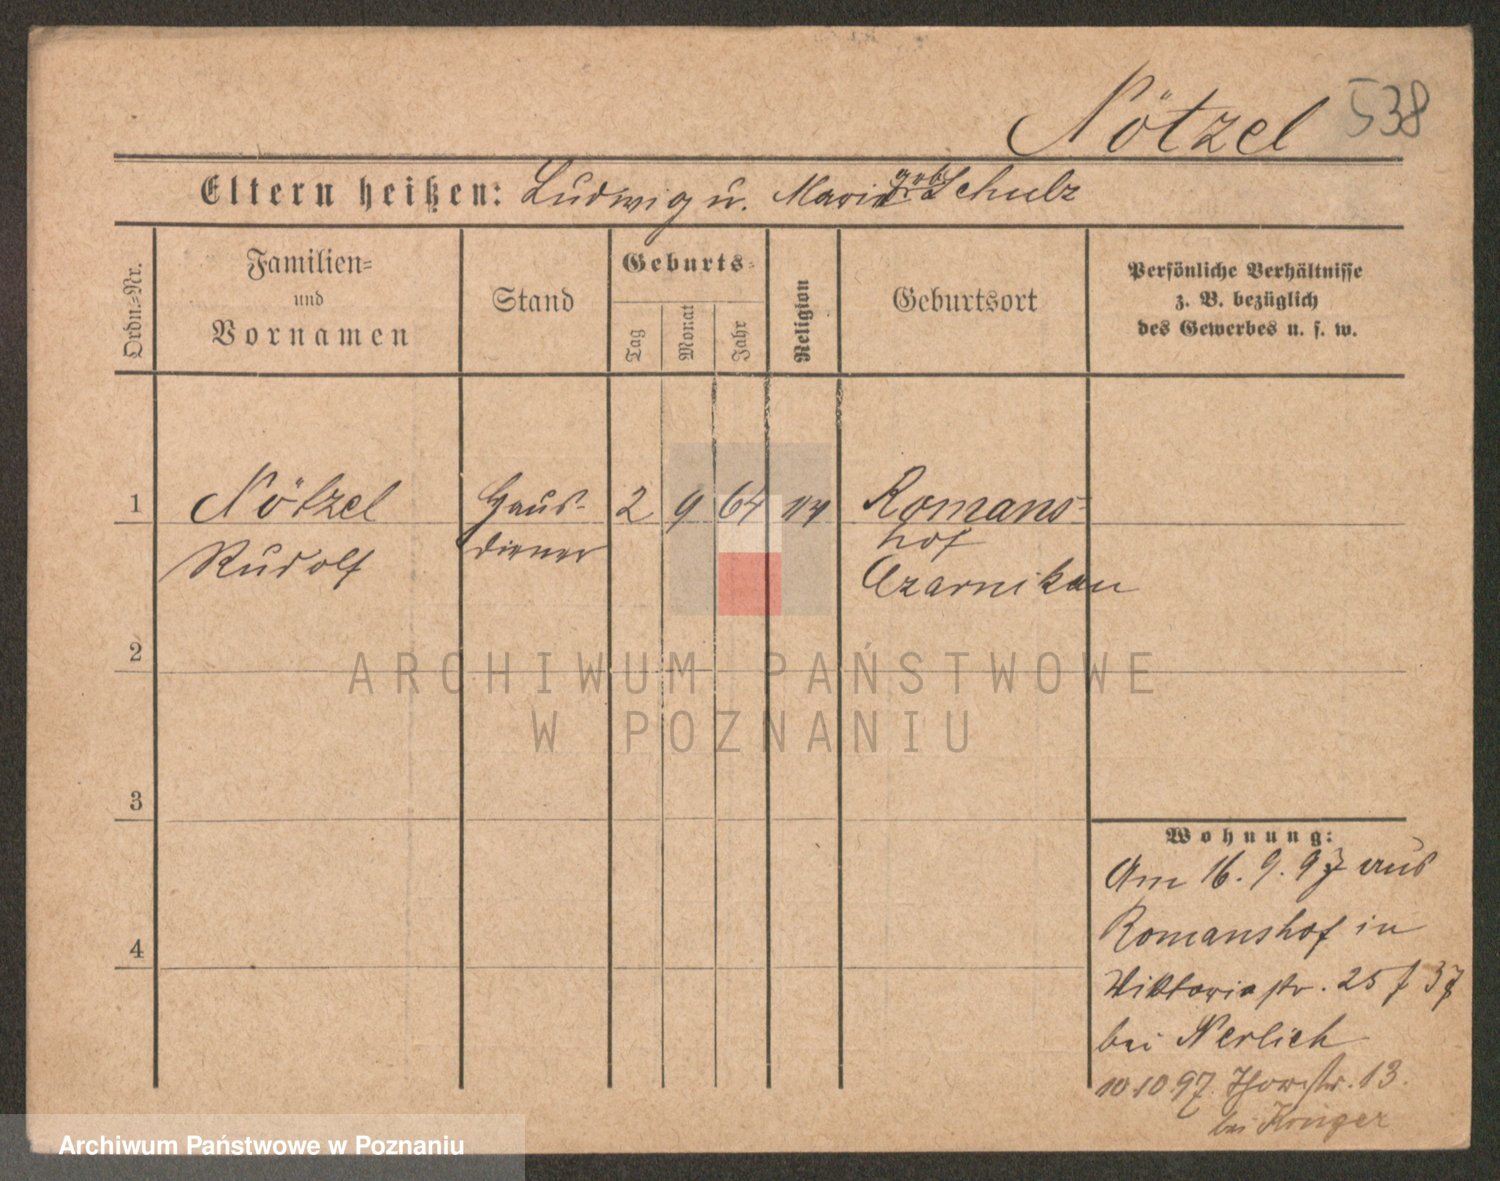 Nötzel 538
Eltern heißen: Ludwig u. Maria geb. Schulz
Ordn.-Nr.
Familien-
und
Vornamen
Stand
Geburts-
Tag
Monat
Jahr
Religion
Geburtsort
Persönliche Verhältnisse
z. B. bezüglich
des Gewerbes u. s. w.
1 Nötzel Haus- 2 9 64 Romans-
Rudolf diener hof
Czarnikau
2
ARCHIWUM PAŃSTWOWE
W POZNANIU
3
Wohnung:
Am 16. 9. 97 aus
4
Romanshof in
Viktoriastr. 25
bei Nerlich
10.10.97. 13.
bei Krüger
Archiwum Państwowe w Poznaniu